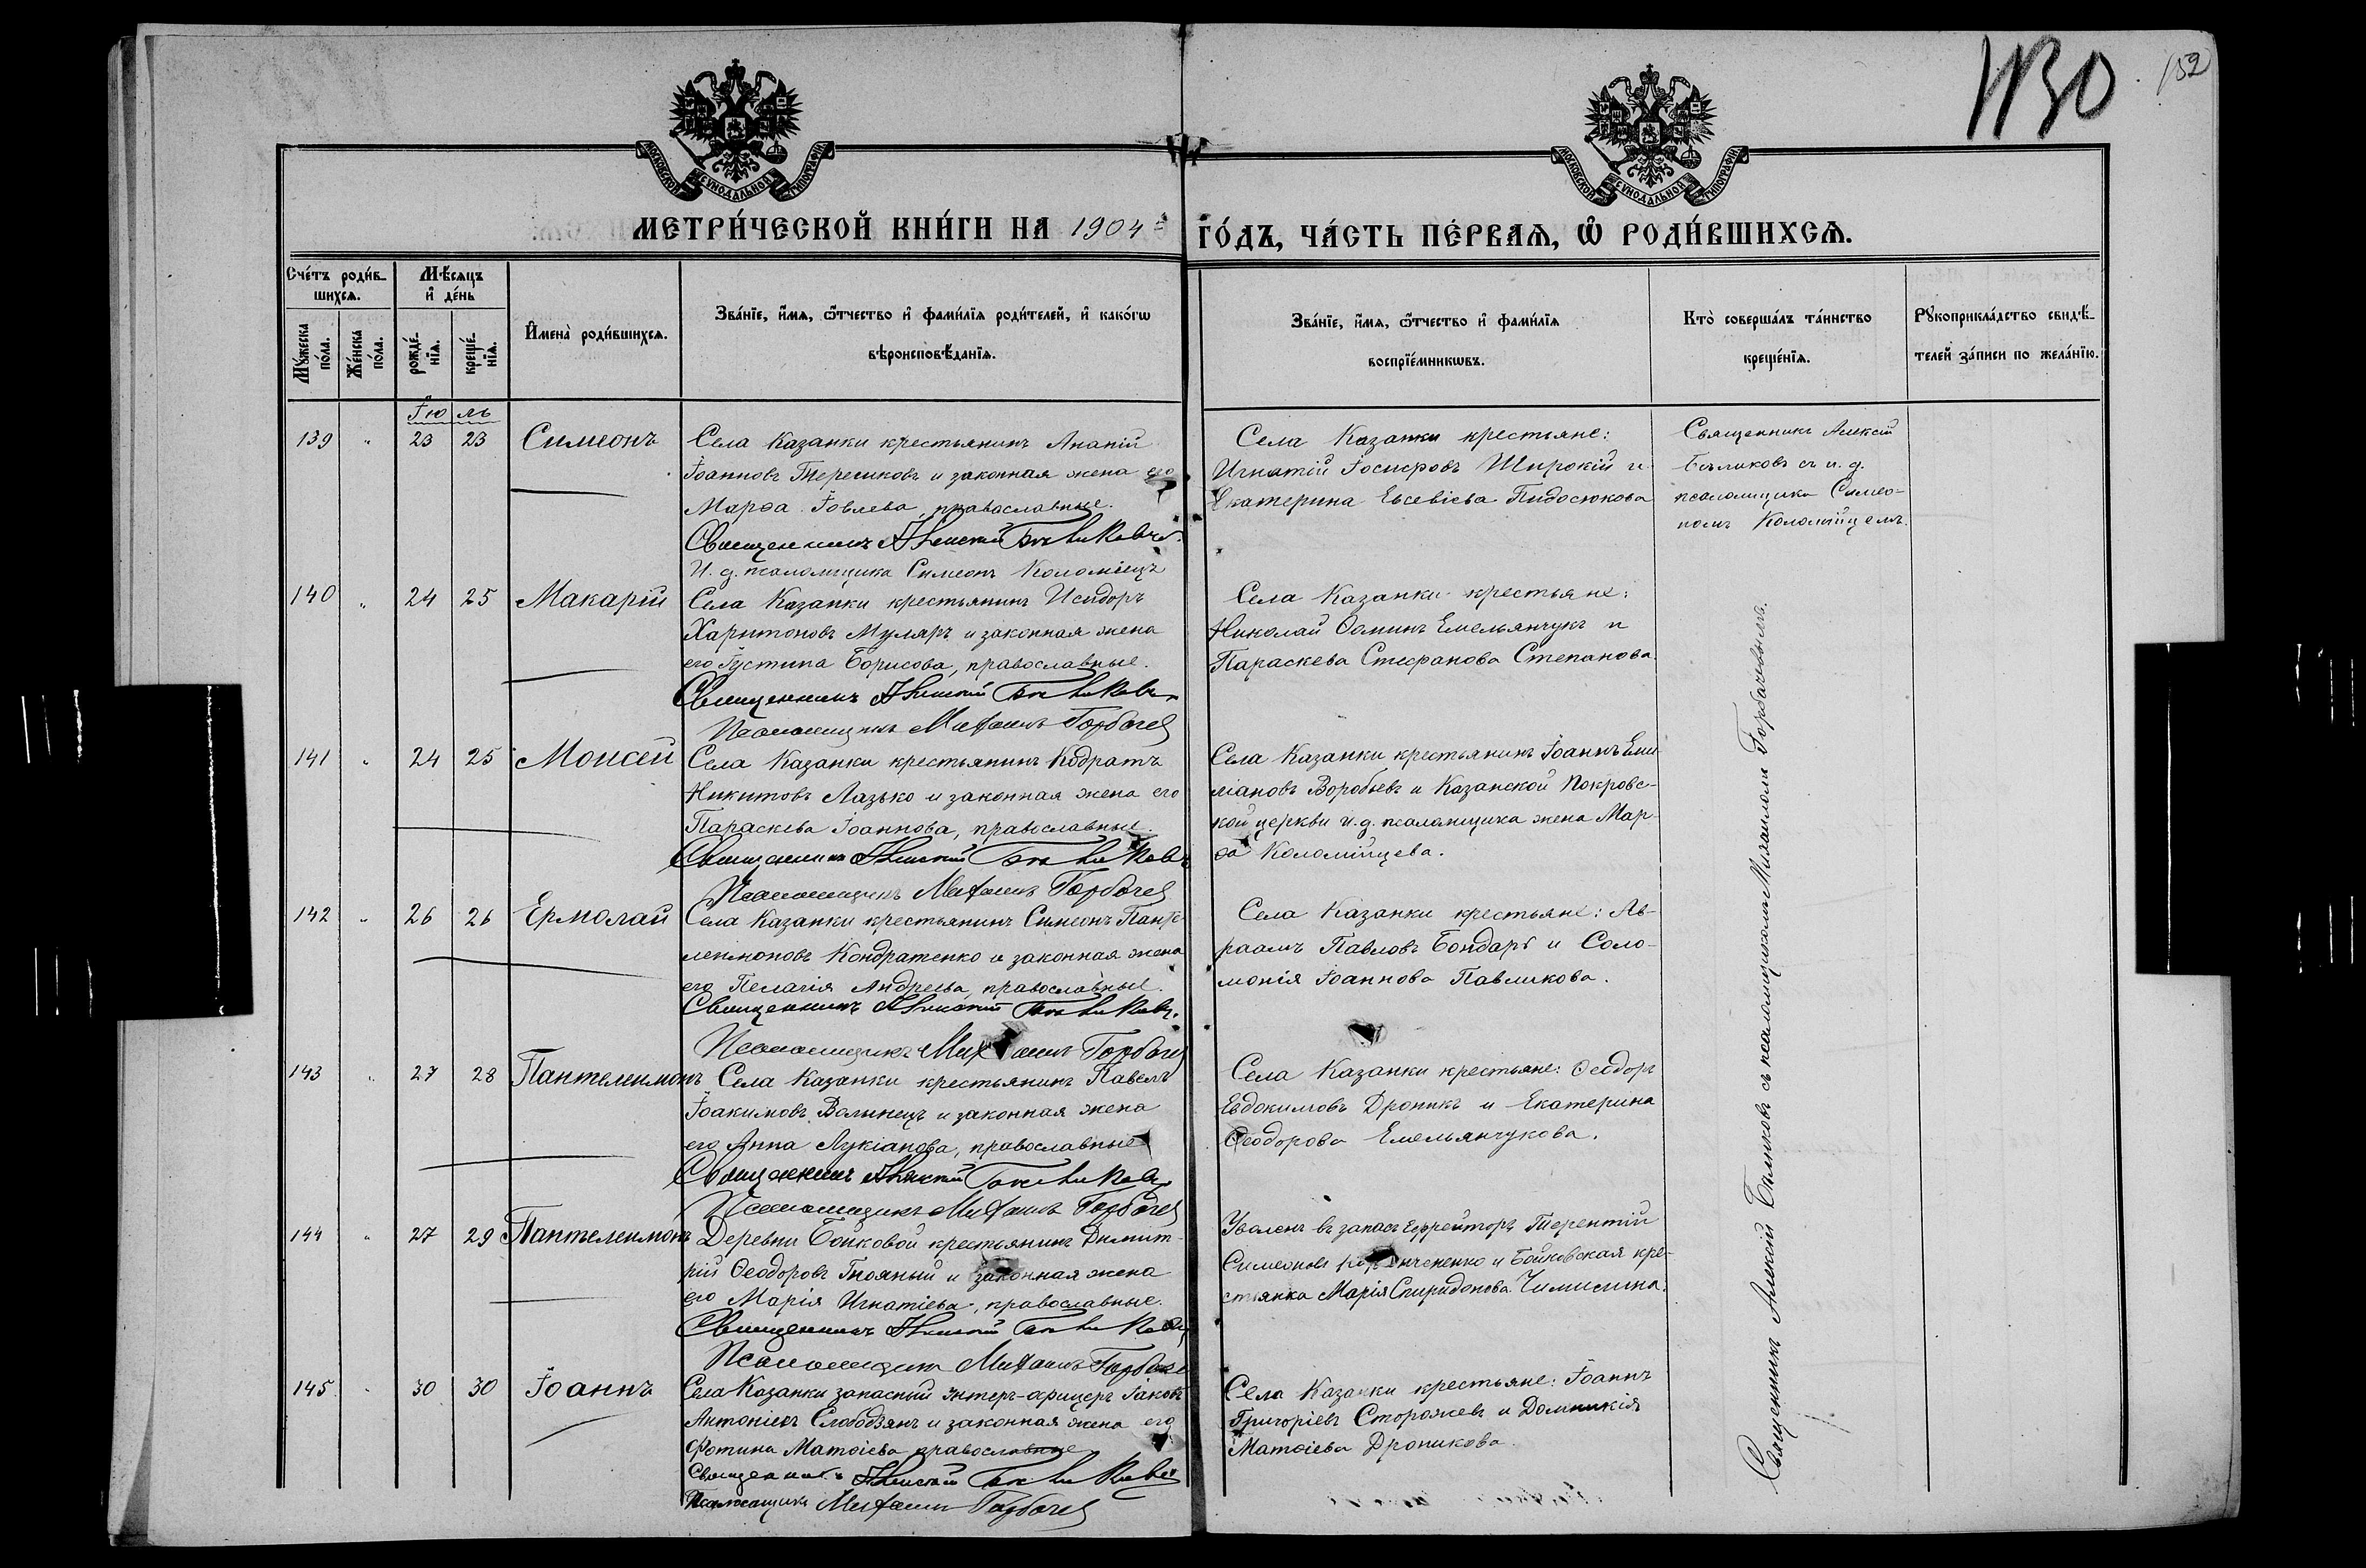 152
МОСКОВСКОЙ СѴНОДАЛЬНОЙ ТИПОГРАФІИ
МОСКОВСКОЙ СѴНОДАЛЬНОЙ ТИПОГРАФІИ
МЕТРИ́ЧЕСКОЙ КНИ́ГИ НА 1904 ГО́ДЪ, ЧА́СТЬ ПЕ́РВАѦ, Ѽ РОДИ́ВШИХСѦ.
Сче́тъ роди́в-
шихсѧ.
Мꙋ́жеска
по́ла.
Же́нска
по́ла.
Мѣ́сѧцъ
и҆ де́нь
рожде́-
нїѧ.
креще́-
нїѧ.
И҆мена̀ роди́вшихсѧ.
Зва́нїе, и҆́мѧ, ѻ҆́тчество и҆ фами́лїѧ роди́телей, и҆ како́гѡ
вѣроисповѣ́данїѧ.
Зва́нїе, и҆́мѧ, ѻ҆́тчество и҆ фами́лїѧ
воспрїе́мникѡвъ.
Кто̀ соверша́лъ та́инство
креще́нїѧ.
Рꙋкоприкла́дство свидѣ́-
телей за́писи по жела́нїю.
Іюль
139 " 23 23 Симеонъ
Села Казанки крестьянинъ Ананій
Іоанновъ Тересиковъ и законная жена его
Марѳа Іовлева, православные.
Священникъ Алексій Бѣликовъ
И. д. псаломщика Симеонъ Коломіецъ
Села Казанки крестьяне:
Игнатій Іосифовъ Широкій и
Екатерина Евсевіева Пидосюкова
Священникъ Алексій
Бѣликовъ съ и. д.
псаломщика Симео-
номъ Коломійцемъ.
140 " 24 25 Макарій
Села Казанки крестьянинъ Исидоръ
Харитоновъ Муляръ и законная жена
его Іустина Борисова, православные.
Священникъ Алексій Бѣликовъ
Псаломщикъ Михаилъ Горбачев
Села Казанки крестьяне:
Николай Ѳоминъ Емельянчукъ и
Параскева Стефанова Степанова.
141 " 24 25 Моисей
Села Казанки крестьянинъ Кодратъ
Никитовъ Лазько и законная жена его
Параскева Іоаннова, православные.
Священникъ Алексій Бѣликовъ
Псаломщикъ Михаилъ Горбачев
Села Казанки крестьянинъ Іоаннъ Еми
ліановъ Воробьевъ и Казанской Покровс-
кой церкви и. д. псаломщика жена Мар-
ѳа Коломійцева.
142 " 26 26 Ермолай
Села Казанки крестьянинъ Симеонъ Панте-
леимоновъ Кондратенко и законная жена
его Пелагія Андреева, православные.
Священникъ Алексій Бѣликовъ.
Псаломщикъ Михаилъ Горбачев
Села Казанки крестьяне: Ав-
раамъ Павловъ Бондарь и Соло-
монія Іоаннова Павликова.
143 " 27 28 Пантелеимонъ
Села Казанки крестьянинъ Павелъ
Іоакимовъ Волынецъ и законная жена
его Анна Лукіанова, православные
Священникъ Алексій Бѣликовъ
Псаломщикъ Михаилъ Горбачев
Села Казанки крестьяне: Ѳеодоръ
Евдокимовъ Дроникъ и Екатерина
Ѳеодорова Емельянчукова.
144 " 27 29 Пантелеимонъ
Деревни Бойковой крестьянинъ Димит-
рій Ѳеодоровъ Гнояный и законная жена
его Марія Игнатіева, православные.
Священникъ Алексій Бѣликовъ
Псаломщикъ Михаилъ Горбачев
Уволенъ въ запасъ ефрейторъ Терентій
Симеоновъ и Бойковская кре-
стьянка Марія Спиридонова Чимисина.
145 " 30 30 Іоаннъ
Села Казанки запасный унтеръ-офицеръ Іаковъ
Антоніевъ Слободзянъ и законная жена его
Фотина Матѳіева православные
Священникъ Алексій Бѣликовъ
Псаломщикъ Михаилъ Горбачев
Села Казанки крестьяне: Іоаннъ
Григоріевъ Сторожевъ и Домникія
Матѳіева Дроникова.
Священникъ Алексій Бѣликовъ съ псаломщикомъ Михаиломъ Горбачевымъ.